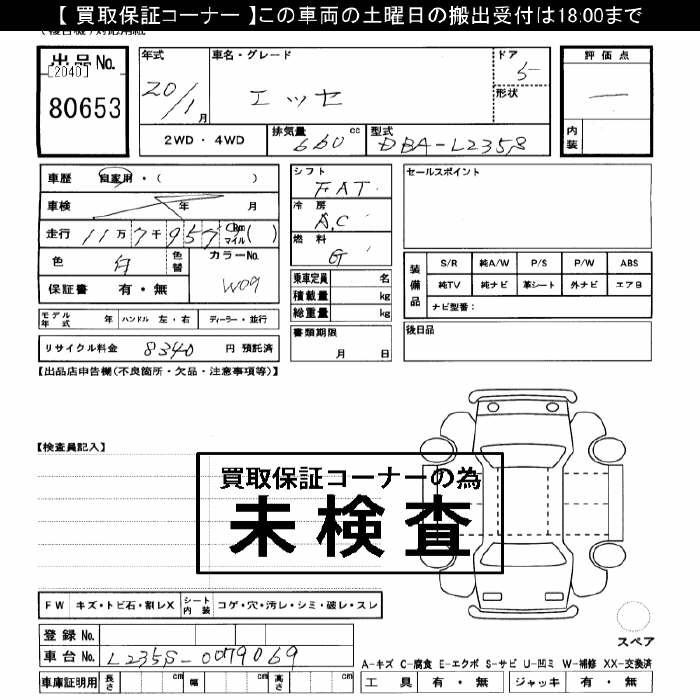 【 買取保証コーナー 】この車両の土曜日の搬出受付は18:00まで
出品No.
[2040]
80653
年式
20/1月
車名・グレード
エッセ
ドア
5
形状
評価点
内装
2WD・4WD
排気量 660 cc
型式 DBA-L235S
車歴 自家用・( )
車検 年 月
走行 11万7千957 Km マイル ( )
色 白 色替
カラーNo.
W09
保証書 有・無
シフト
FAT
冷房
A,C
燃料
G
乗車定員 名
積載量 kg
総重量 kg
セールスポイント
装備品
S/R 純A/W P/S P/W ABS
純TV 純ナビ 革シート 外ナビ エアB
ナビ型番:
モデル年式 年 ハンドル 左・右 ディーラー・並行
リサイクル料金 8340 円 預託済
書類期限
月 日
後日品
【出品店申告欄(不良箇所・欠品・注意事項等)】
【検査員記入】
買取保証コーナーの為
未検査
FW キズ・トビ石・割レX シート内装 コゲ・穴・汚レ・シミ・破レ・スレ
登録No.
車台No. L235S-0079069
車庫証明用 長さ cm 幅 cm 高さ cm
スペア
A-キズ C-腐食 E-エクボ S-サビ U-凹ミ W-補修 XX-交換済
工具 有・無 ジャッキ 有・無